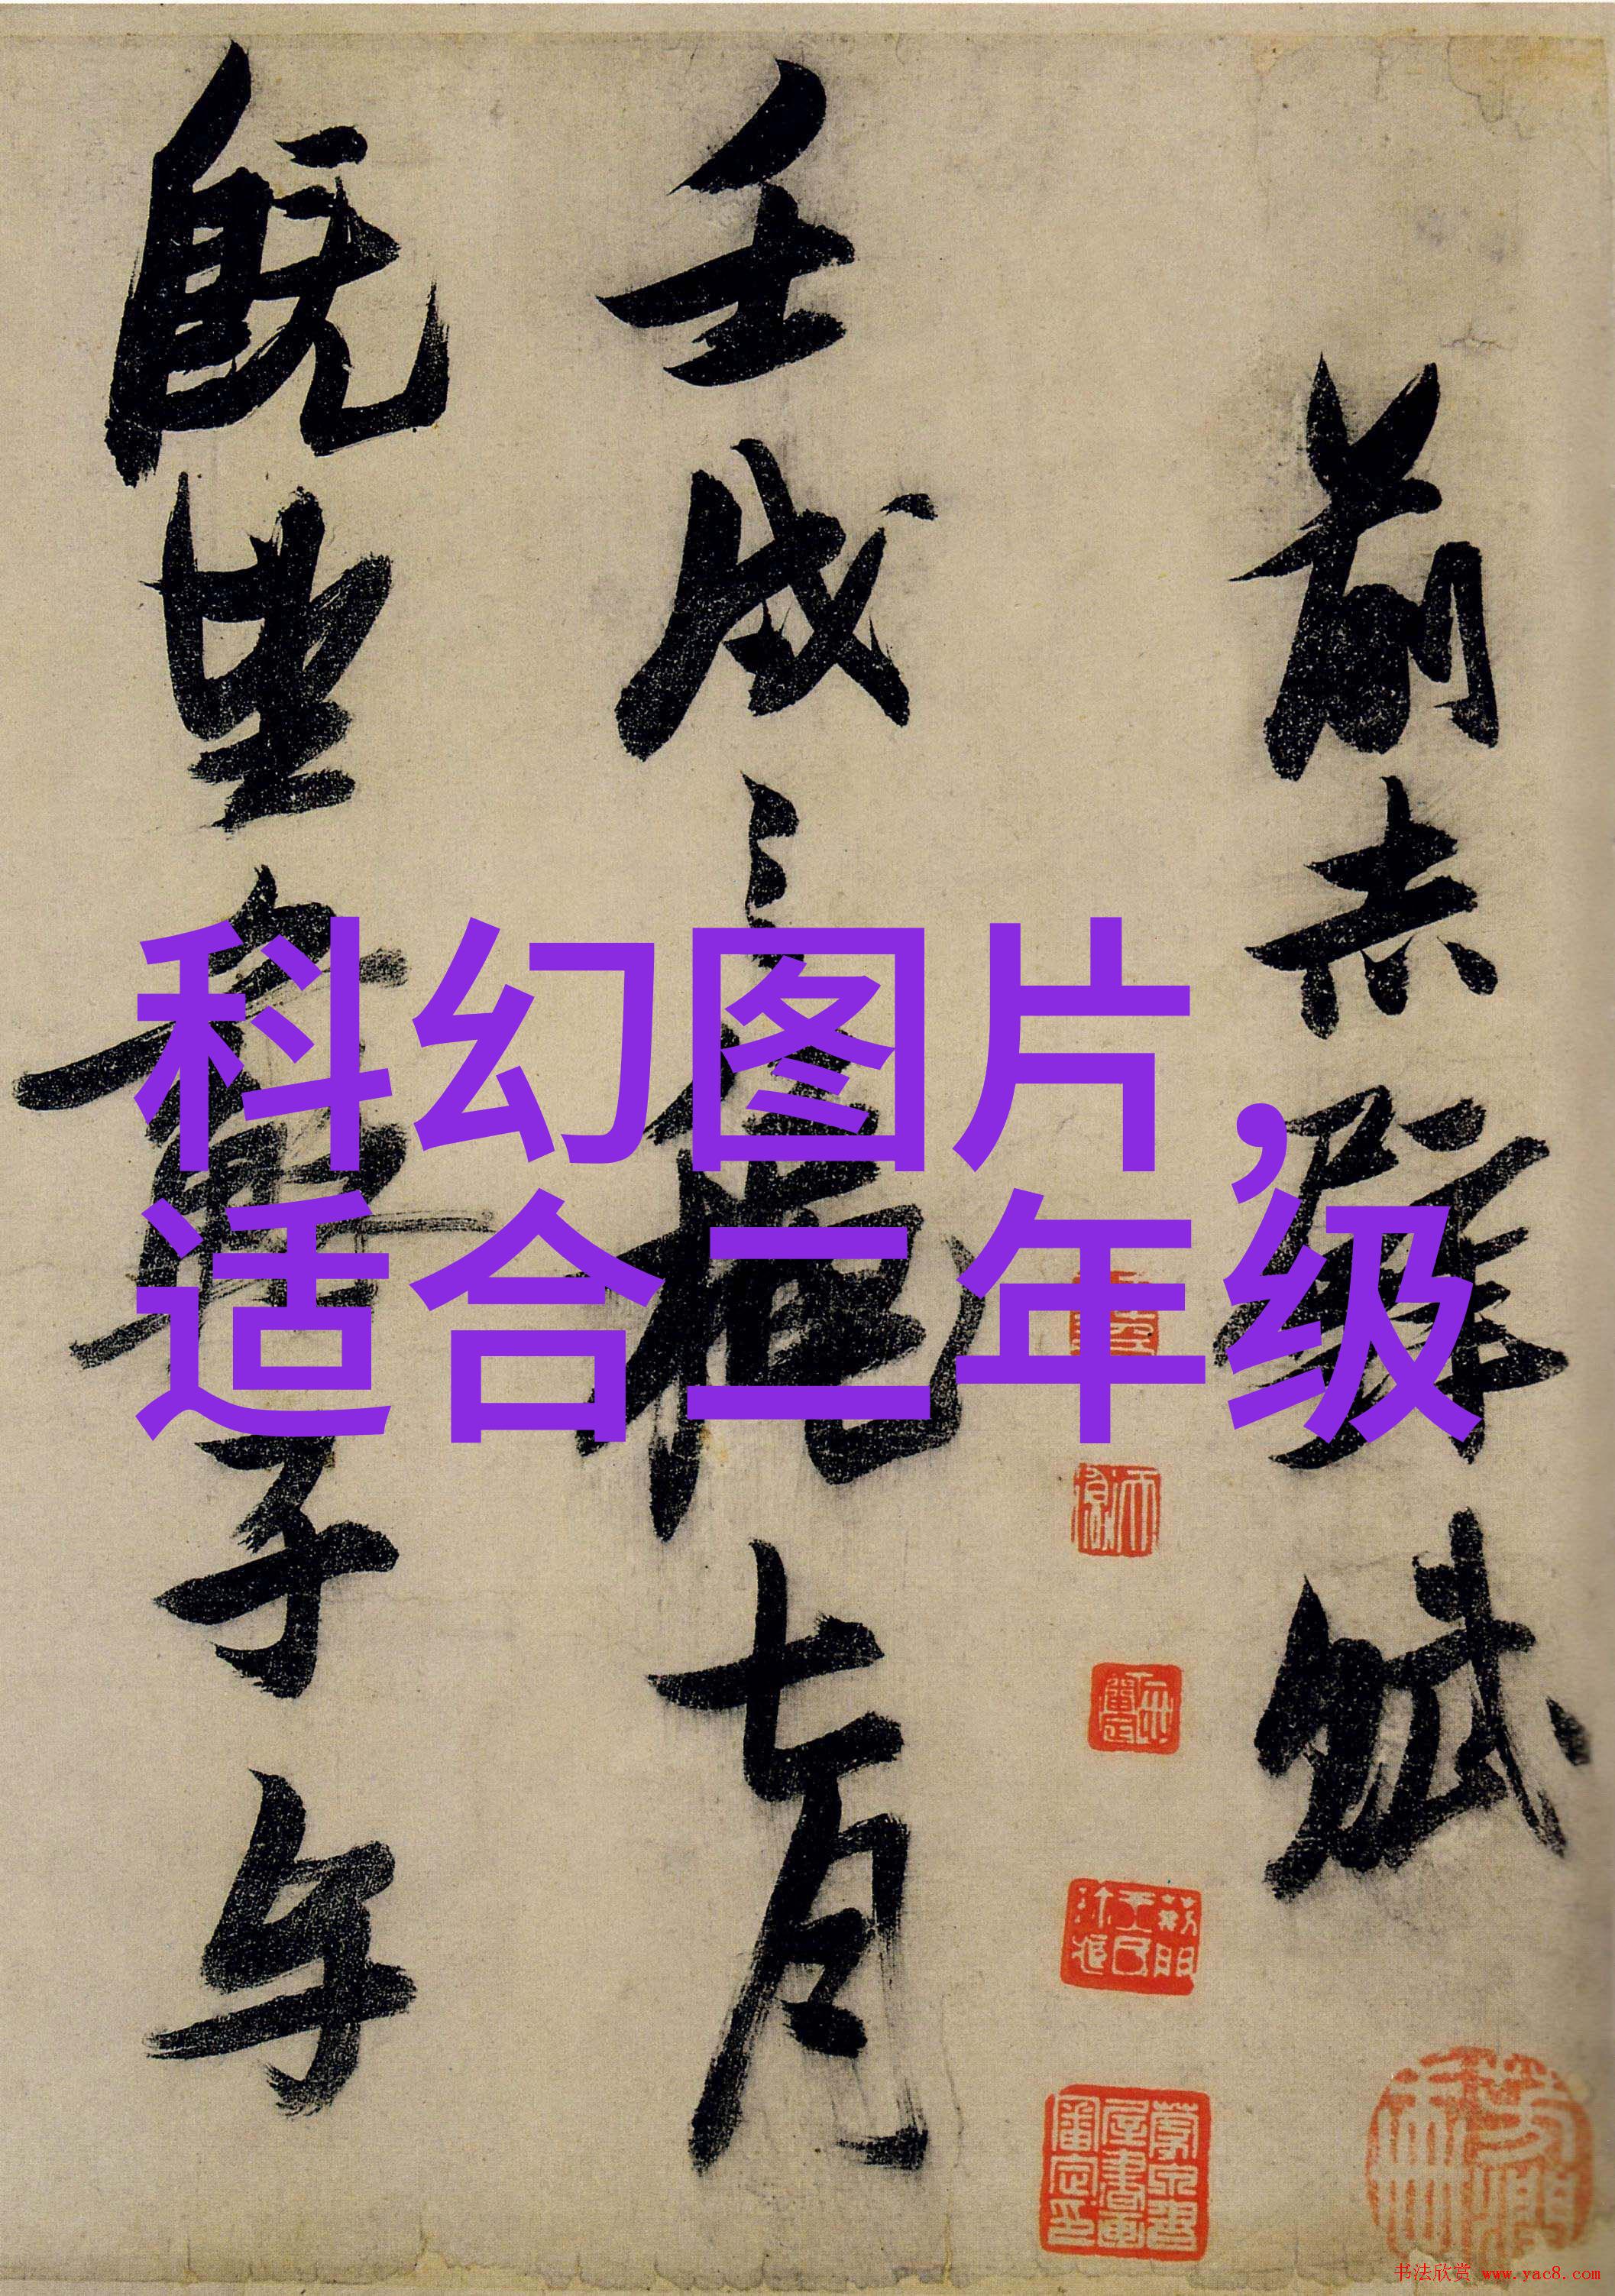 前赤壁賦
壬戌之秋七月
既望蘇子与
科幻图片，
适合二年级
书法欣赏 www.yac8.com